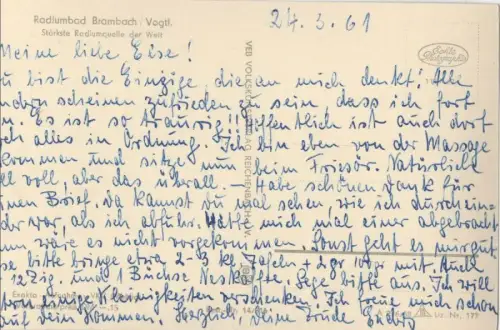 24.5.61
Radiumbad Brambach / Vogtl.
Stärkste Radiumquelle der Welt
Meine liebe Else!
Du bist die Einzige, die an mich denkt. Alle
andern scheinen zufrieden zu sein, dass ich fort
bin. Es ist so traurig!! Hoffentlich ist auch dort
noch alles in Ordnung. Ich bin eben von der Massage
gekommen und sitze nun beim Frisör. Natürlich
voll, aber das überall. – Habe schönen Dank für
Deinen Brief. Da kannst du mal sehen, wie ich durchein-
ander war, als ich abfuhr. Hätte mich mal einer abgebracht
dann wäre es nicht vorgekommen. Sonst geht es mir gut.
bitte bringe etwa 2-3 mit. Auch
12 Zig. und 1 Büchse Neskaffee. Lege bitte aus. Ich will
Kleinigkeiten verschenken. Ich freue mich schon
auf dein Kommen. Herzlich, deine Trude
VEB VOLKSKUNSTVERLAG REICHENBACH